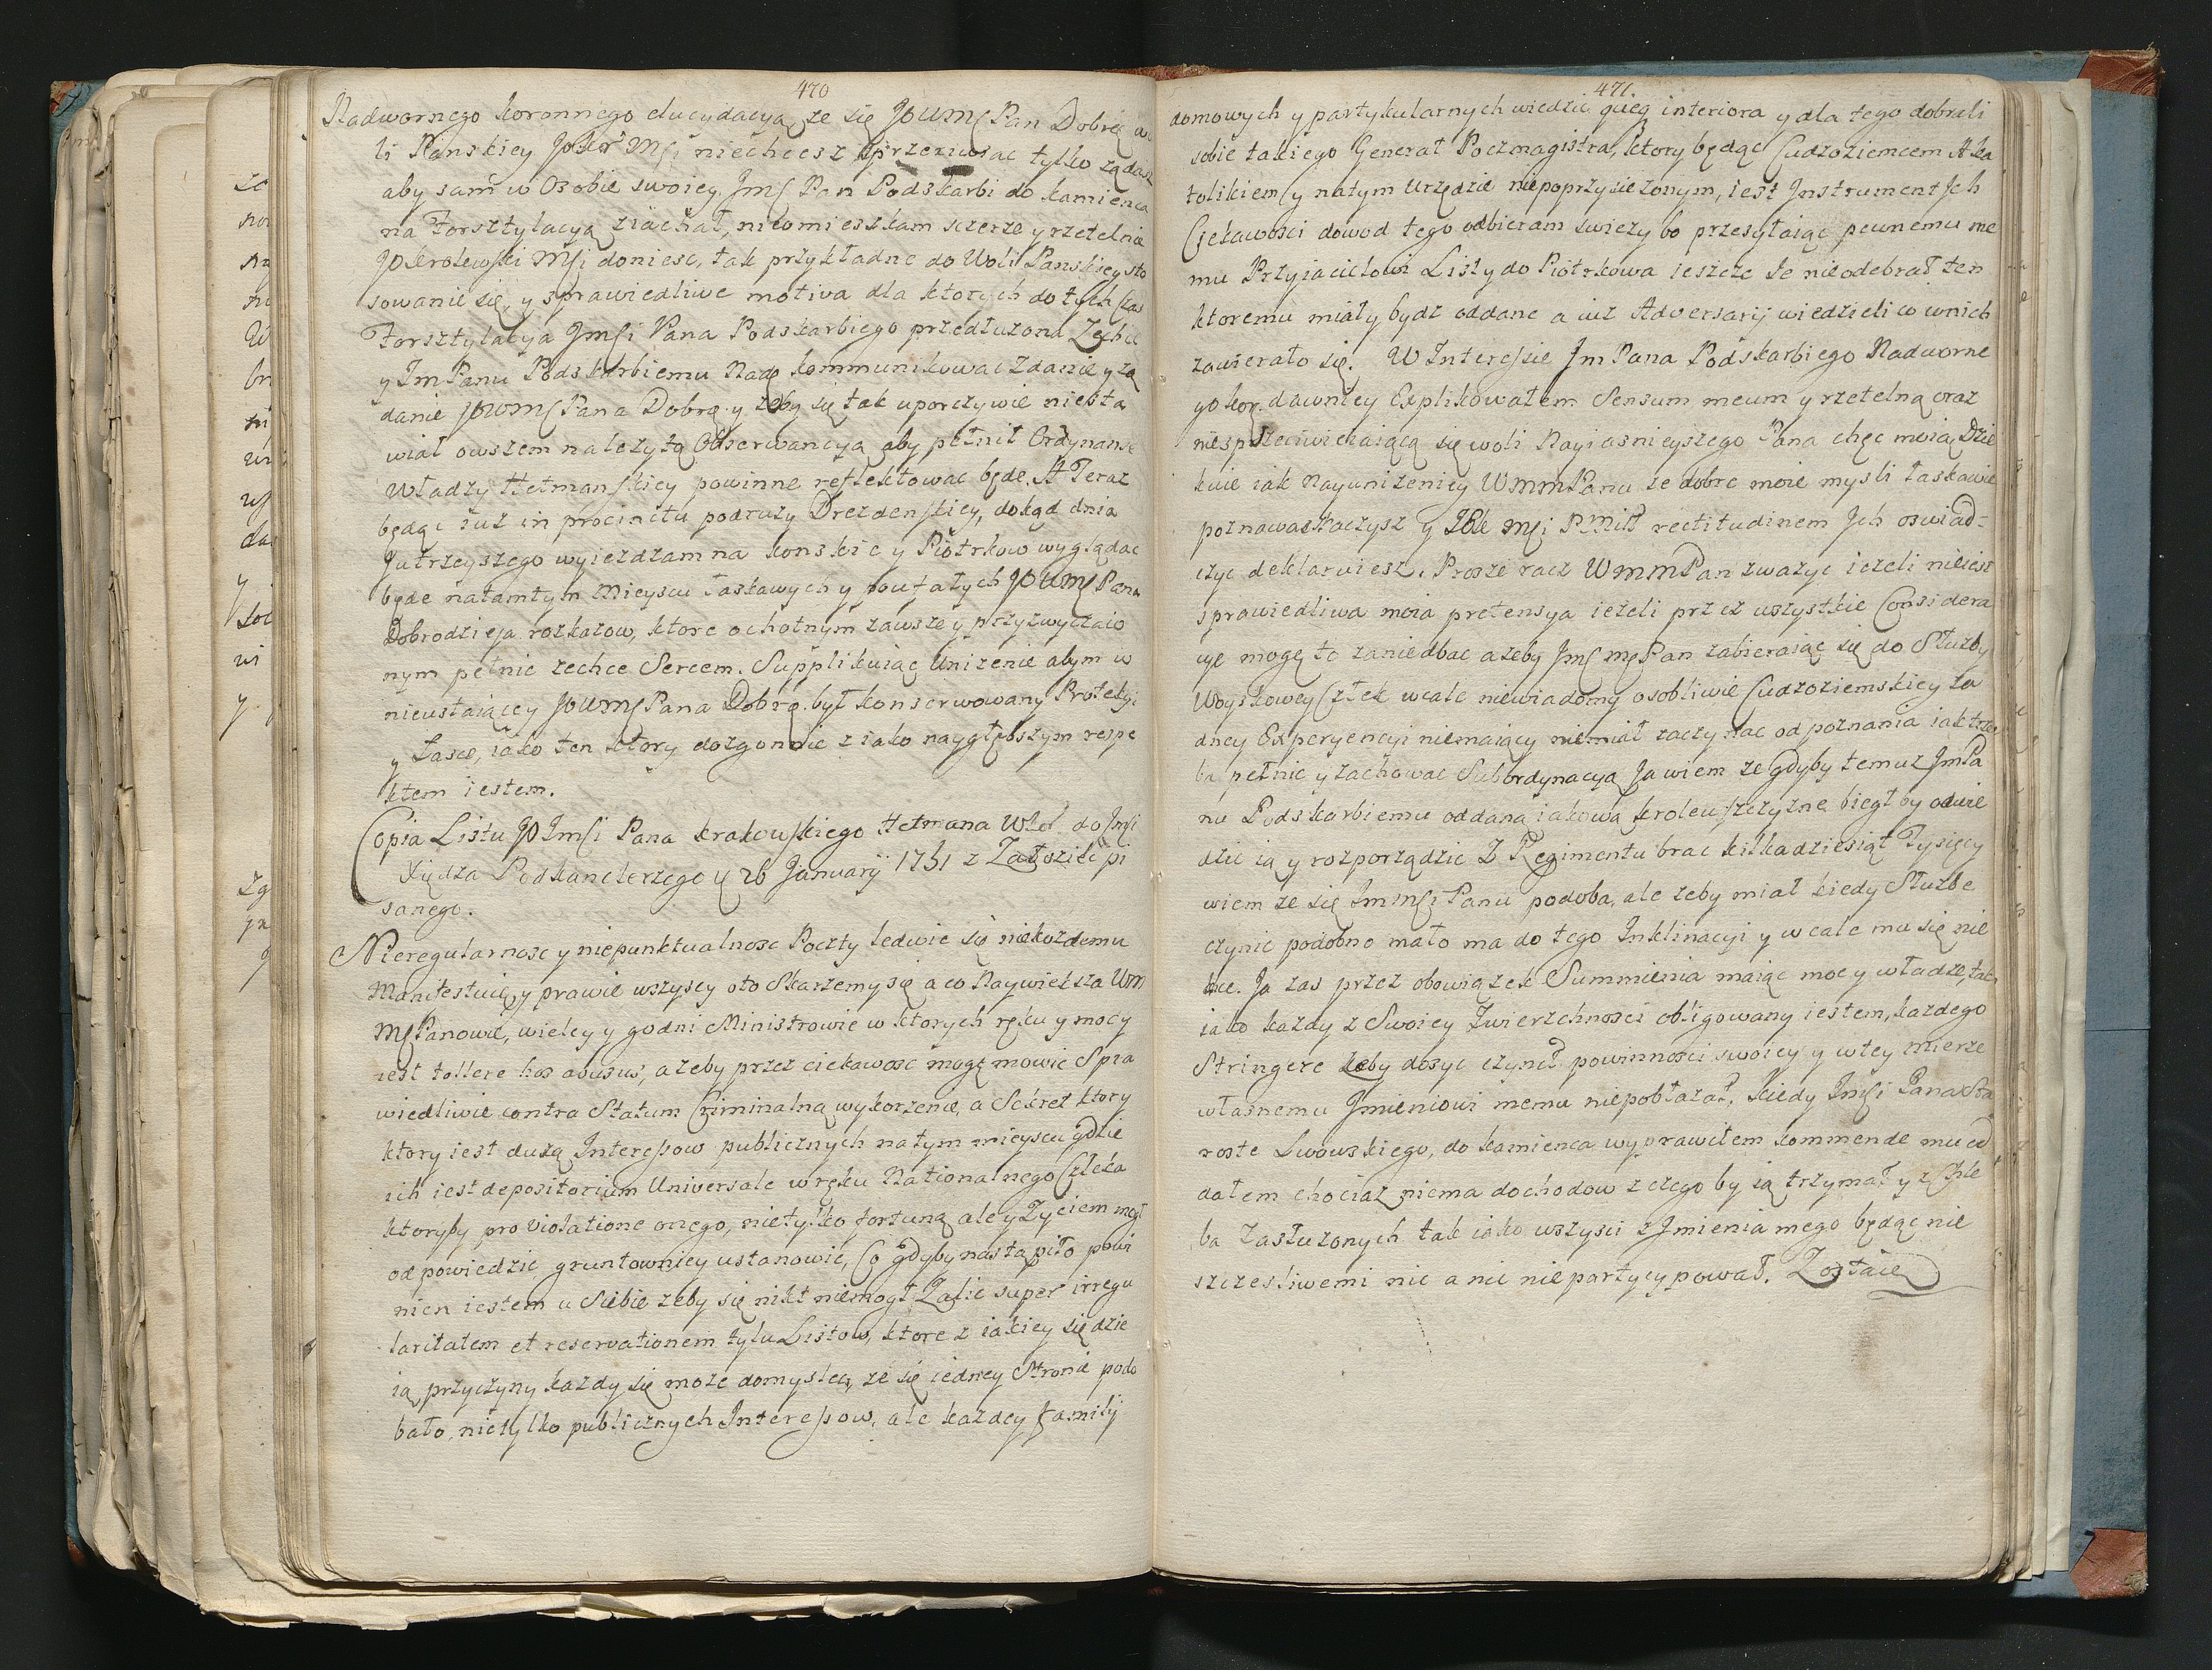 470
Nadwornego koronnego elucydacyą, ze się JOWMs Pan Dobrę wo
li Panskiey JOKr Msi niechcesz sprzeciwiac tylko ządasz
aby sam w Osobie swoiey Jms Pan Podskarbi do kamienca
na Forsztylacyą ziachał, nieomieszkam szczerze y rzetelnie
JOkrolewski Msi doniesc, tak przykładne do Woli Panskiey sto
sowanie się, y sprawiedliwe motiva dla ktorych do tych Czas
Forsztylacya Jmsi Pana Podskarbiego przedłuzona Zechce
y Jm Panu Podskarbiemu Nadp kommunikowac Zdanie y zą
danie JOWMs Pana Dobrę. y zeby się tak uporczywie niesta
wiał owszem nalezytą Obserwancyą aby pełnił Ordynanse
Władzy Hetmanskiey powinne reflektowac będe. A Teraz
będąc iuz in procinctu podruzy Drezdenskiey, dokąd dnia
Jutrzeyszego wyiezdzam na konskie y Piotrkow wyglądac
będe natamtym Mieyscu łaskawych y poufałych JOWMs Pana
Dobrodzieja rozkazow, ktore ochotnym zawsze y przyzwyczaio
nym pełnic zechce Sercem. Supplikuiąc Unizenie abym w
nieustaiącey JOWMs Pana Dobrę. był konserwowany Protekcyi
y Łasce, iako ten ktory dozgonnie z iako naygłębszym respe
ktem iestem.
Copia Listu JO Jmsi Pana krakowskiego Hetmana Wło. do Jmsi
Xiędza Podkanclerzego d 26 January 1731 z Załozic pi
sanego.
Nieregularnosc y niepunktualnosc Poczty ledwie się niekozdemu
Manifestuie, y prawie wszyscy oto Skarzemy się a co Naywieksza Wm
Ms Panowie, wielcy y godni Ministrowie w ktorych ręku y mocy
iest tollere hos abusus, azeby przez ciekawosc mogę mowic Spra
wiedliwie contra Statum Criminalną wykorzenic, a Sekret ktory
ktory iest duszą Interessow publicznych natym mieyscu gdzie
ich iest depositorium Universale w ręku Nationalnego Człeka
ktoryby pro violatione onego, nietylko fortuną ale y Zyciem mogł
odpowiedzic gruntowniey ustanowic, Co gdyby nastąpiło powi
nien iestem u Siebie zeby się nikt niemogł Zalic super irregu
laritatem et reservationem tylu Listow, ktore z iakiey się dzie
ią przyczyny kazdy się moze domyslec, ze się iedney Stronie podo
bało, nietylko publicznych Interessow, ale kazdey familij
471.
domowych y partykularnych wiedzic quęq interiora y dla tego dobrali
sobie takiego Generał Poczmagistra, ktory będąc Cudzoziemcem Aka
tolikiem y natym Urzędzie niepoprzysiezonym, iest Instrument Jch
Ciekawosci dowod tego odbieram swiezy bo przesyłaiąc pewnemu me
mu Przyjacielowi Listy do Piotrkowa ieszcze ie nieodebrał ten
ktoremu miały bydz oddane a iuz Adversarij wiedzieli co wnich
zawierało się. W Interessie Jm Pana Podskarbiego Nadworne
go kor. dawniey Explikowałem Sensum meum y rzetelną oraz
niesprzeciwiaiącą się woli Nayiasnieyszego Pana chęc moią, Dzie
kuie iak Nayunizeniey WmmPanu ze dobre moie mysli łaskawie
poznawac raczysz y JKr Msi PnMił rectitudinem Jch oswiad-
czyc deklaruiesz. Prosze racz WmmPan zwazyc iezeli nieiest
sprawiedliwa moia pretensya iezeli przez wszystkie Considera
cye mogę to zaniedbac azeby Jms ms Pan zabieraiąc się do Słuzby
Woyskowey Człek wcale niewiadomy osobliwie Cudzoziemskiey za
dney Experyencyi niemaiący niemiał zaczynac od poznania iak trze
ba pełnic y zachowac Subordynacyą Ja wiem ze gdyby temuz JmPa
nu Podskarbiemu oddana iakowa krolewszczyzne biegłby odwie
dzic ią y rozporządzic Z Regimentu brac kilkadziesiąt Tysięcy
wiem ze się Jmmsi Panu podoba, ale zeby miał kiedy Słuzbe
czynic podobno mało ma do tego Inklinacyi y wcale mu się nie
chce. Ja zas przez obowiązek Summienia maiąc moc y władze, tak,
iako kazdy z Swoiey Zwierzchnosci obligowany iestem, kazdego
Stringere zeby dosyc czynił powinnosci swoiey y wtey mierze
własnemu Jmieniowi memu niepobłazał. Kiedy Jmsi Pana Sta
roste Lwowskiego, do kamienca wyprawiłem kommende mu od
dałem chociaz niema dochodow z czego by ią trzymał y z Chle
ba Zasłuzonych tak iako wszysci z Jmienia mego będąc nie
szczesliwemi nic a nic niepartycypował. Zostaię